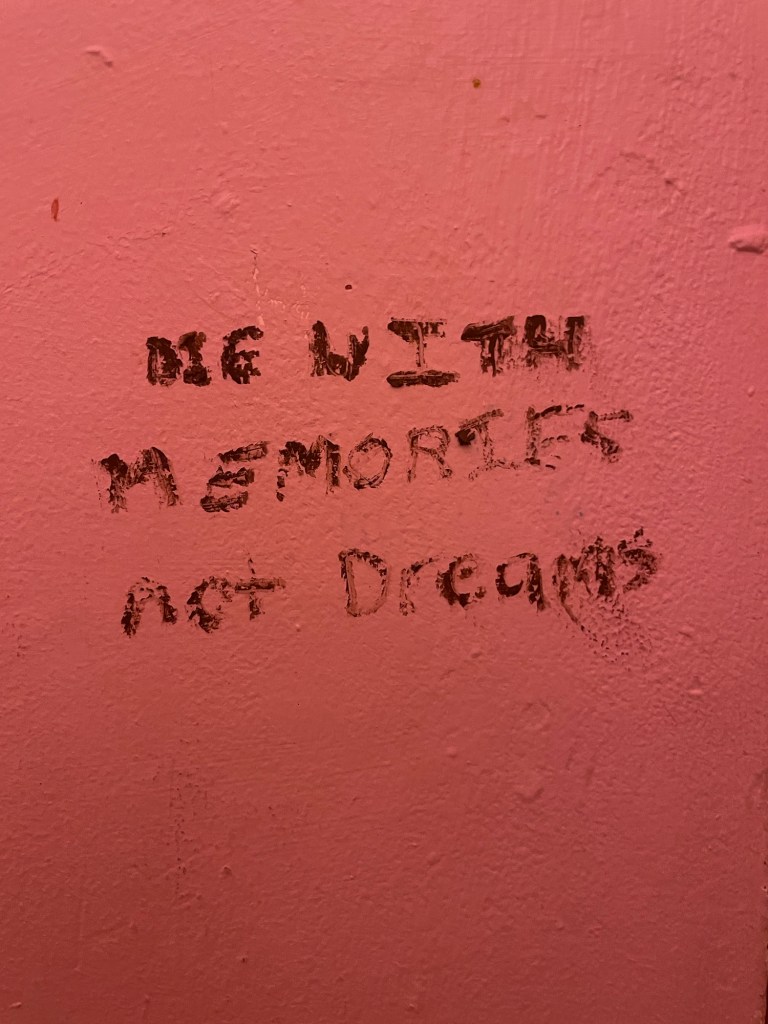 DIE WITH
MEMORIES
not Dreams